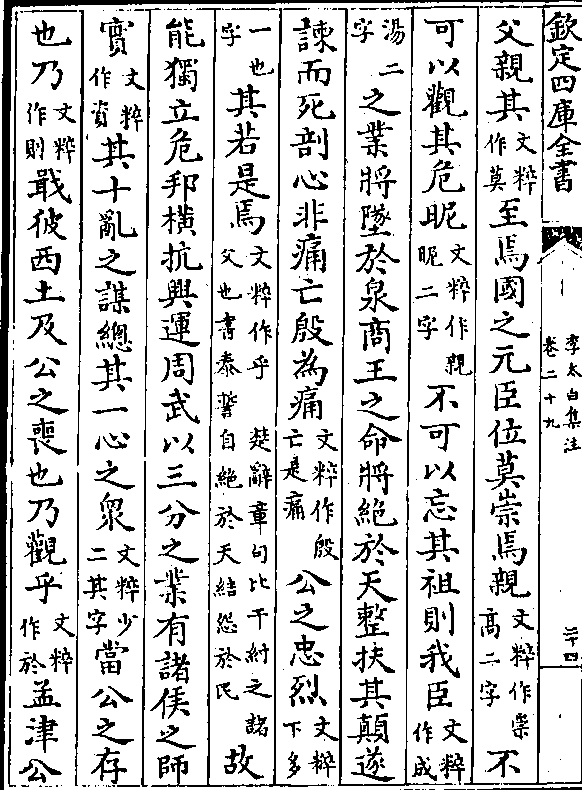 欽定四庫全書
李太白集注
卷二十九
二十四
父親其文粹作莫至焉國之元臣位莫崇焉親文粹作崇高二字不
可以觀其危昵文粹作親昵二字不可以忘其祖則我臣文粹作成
湯二字之業將墜於泉商王之命將絕於天整扶其顛遂
諫而死剖心非痛亡殷為痛文粹作殷亡是痛公之忠烈文粹下多
一也字其若是焉文粹作乎 楚辭章句比干紂之諸父也書泰誓自絕於天結怨於民故
能獨立危邦橫抗興運周武以三分之業有諸侯之師
實文粹作資其十亂之謀總其一心之眾文粹少二其字當公之存
也乃文粹作則戢彼西土及公之喪也乃觀乎文粹作於孟津公